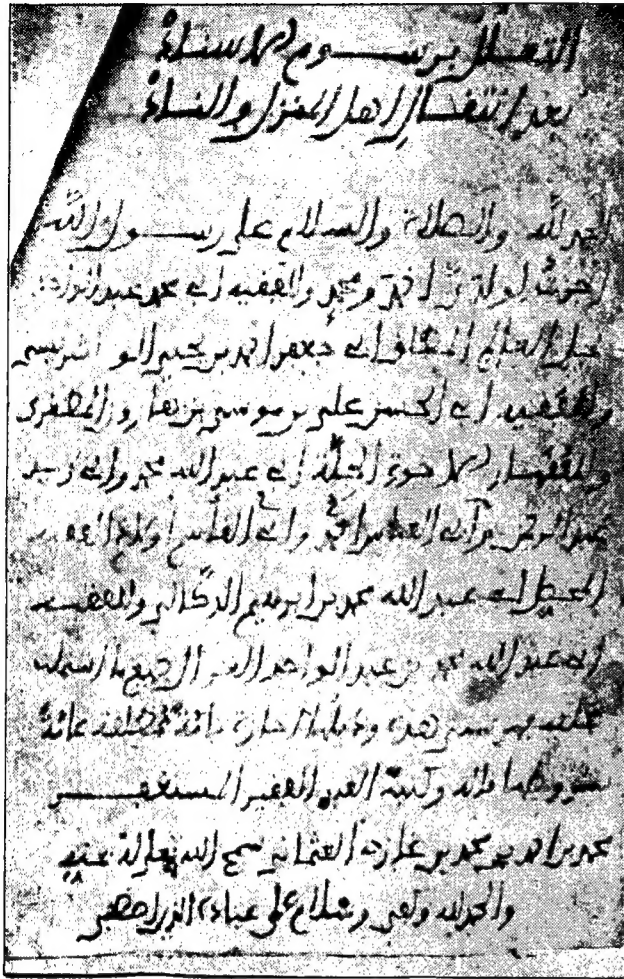 التعلل برسوم الاسناد
بعد انتقال اهل المنزل والناد
الحمد لله والصلاة والسلام على رسول الله
اجزت لولدي احمد ومحمد والفقيه ابي محمد عبد الواحد
نجل العالم ابي جعفر احمد بن يحيى الونشريسي
والفقيه ابي الحسن علي بن موسى بن هارون المضغري
والفقهاء الاخوة الجلة ابي عبد الله محمد وابي زيد
عبد الرحمن وابي العباس احمد وابي القاسم اولاد الفقيه
ابي عبد الله محمد بن ابراهيم الدكالي والفقيه
ابي عبد الله محمد بن عبد الواحد جميع ما اشتملت
عليه فهرستي هذه اجازة تامة مطلقة عامة
بشروطها وكتبه العبد الفقير المستغفر
محمد بن احمد بن محمد بن غازي العثماني سمح الله تعالى له بمنه
والحمد لله وكفى وسلام على عباده الذين اصطفى